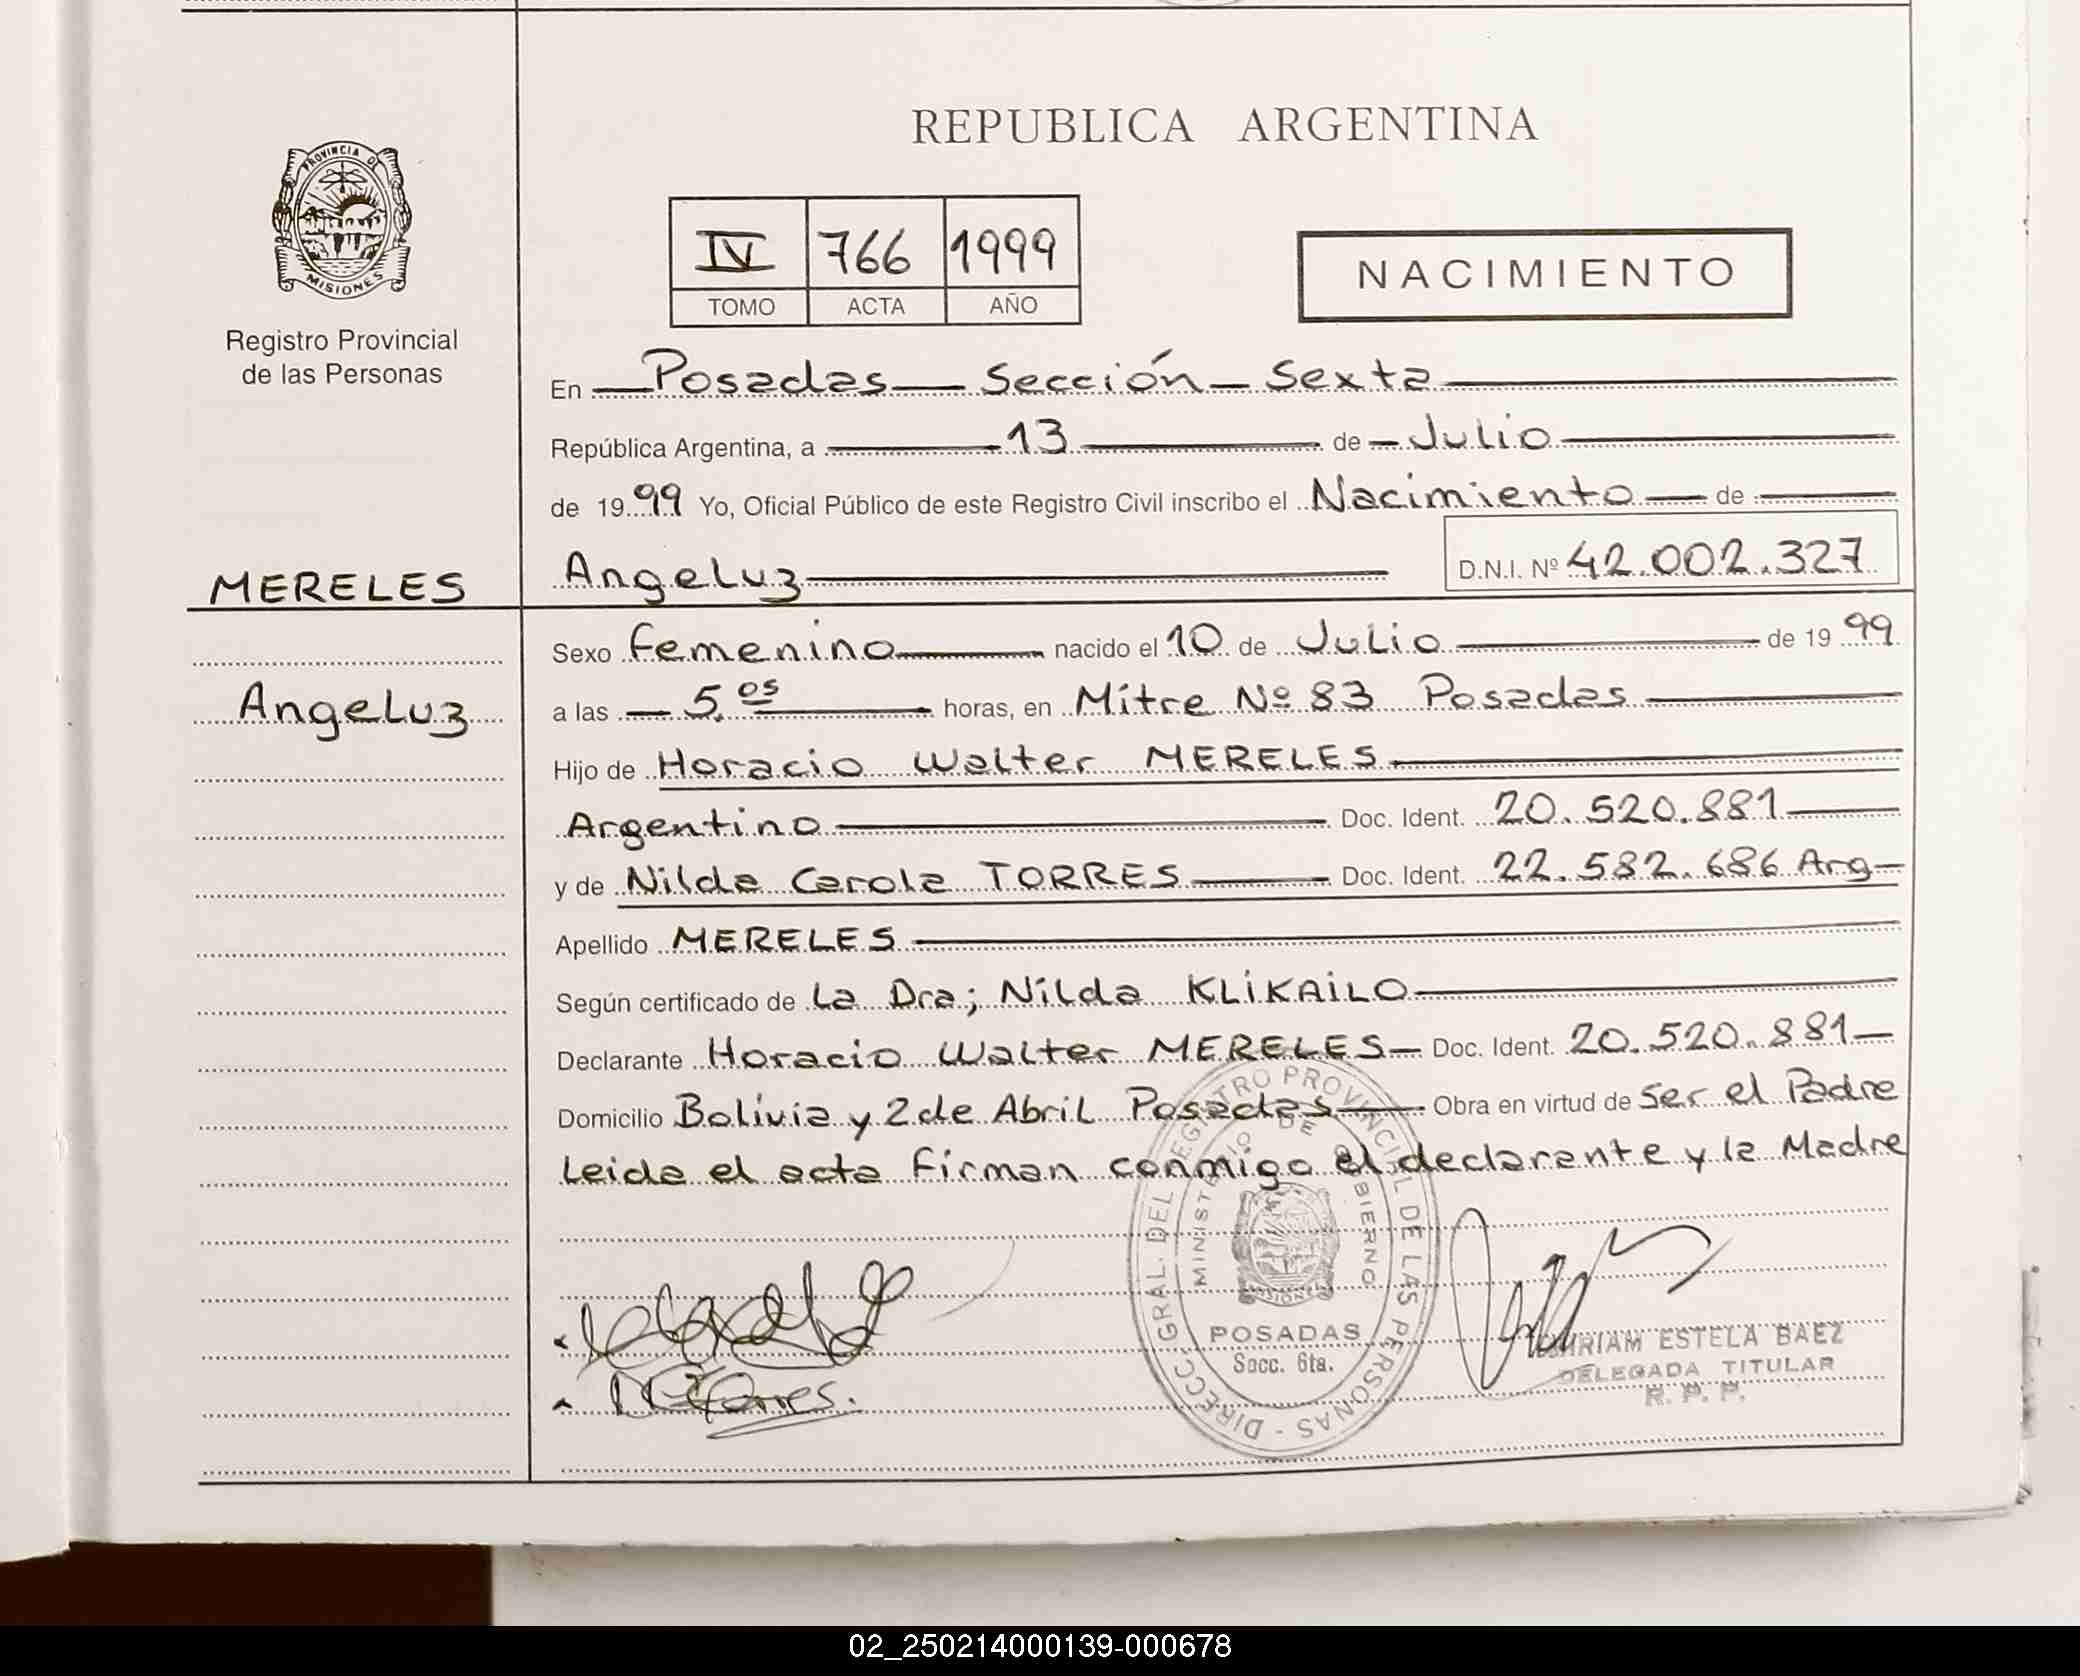 REPUBLICA ARGENTINA
PROVINCIA DE
MISIONES
Registro Provincial
de las Personas
IV 766 1999
TOMO ACTA AÑO
NACIMIENTO
En Posadas Sección Sexta
República Argentina, a 13 de Julio
de 1999 Yo, Oficial Público de este Registro Civil inscribo el Nacimiento de
MERELES
Angeluz D.N.I. Nº 42.002.327
Sexo Femenino nacido el 10 de Julio de 1999
Angeluz
a las 5.05 horas, en Mitre Nº 83 Posadas
Hijo de Horacio Walter MERELES
Argentino Doc. Ident. 20.520.881
y de Nilda Carola TORRES Doc. Ident. 22.582.686 Arg
Apellido MERELES
Según certificado de La Dra; Nilda KLIKAILO
Declarante Horacio Walter MERELES Doc. Ident. 20.520.881
Domicilio Bolivia y 2 de Abril Posadas Obra en virtud de ser el Padre
Leida el acta firman conmigo el declarante y la Madre
DIRECC. GRAL. DEL REGISTRO PROVINCIAL DE LAS PERSONAS
MINISTERIO DE GOBIERNO
MISIONES
POSADAS
Secc. 6ta.
MIRIAM ESTELA BAEZ
DELEGADA TITULAR
R. P. P.
02_250214000139-000678